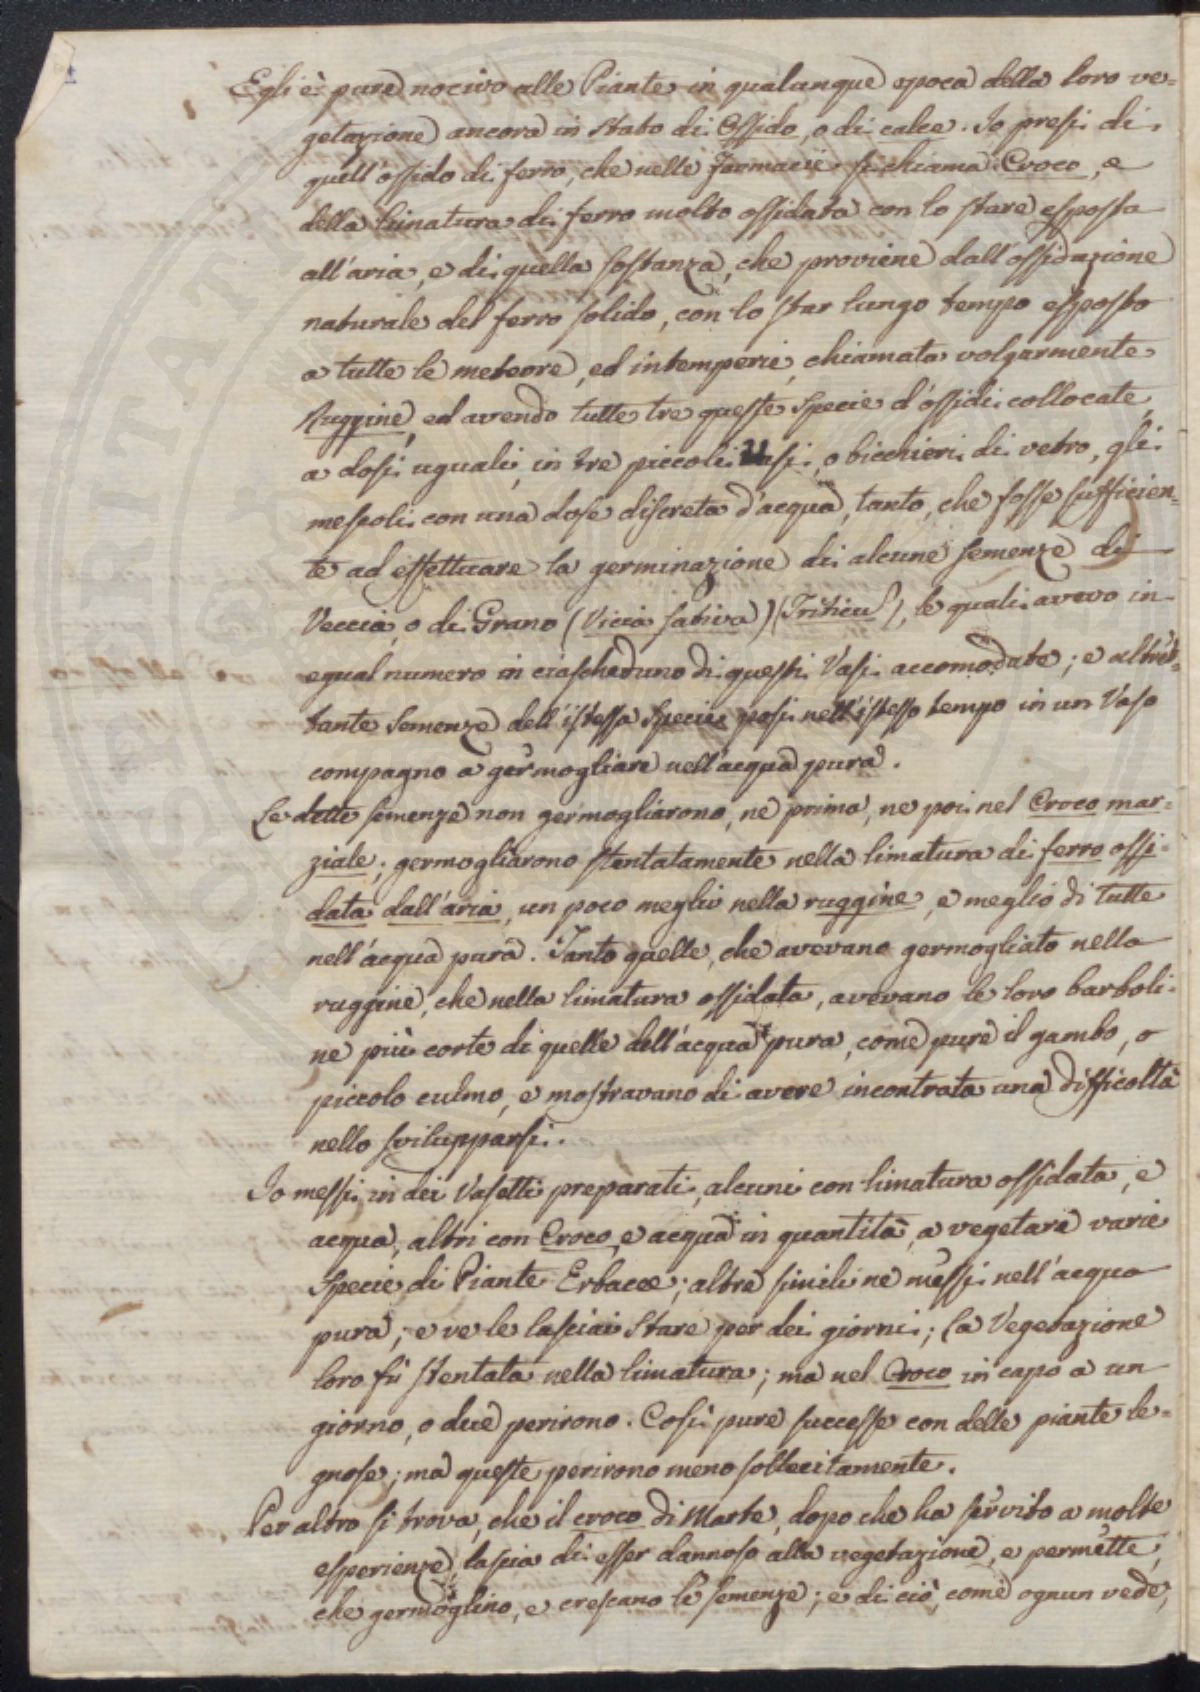 Egli è pure nocivo alle Piante in qualunque epoca della loro ve-
getazione ancora in stato di Ossido, o di calce. Io presi di
quell'ossido di ferro, che nelle Farmacie si chiama Croco, e
della limatura di ferro molto ossidata con lo stare esposta
all'aria, e di quella sostanza, che proviene dall'ossidazione
naturale del ferro solido, con lo star lungo tempo esposto
a tutte le meteore, ed intemperie, chiamata volgarmente
Ruggine, ed avendo tutte tre queste specie d'ossidi collocate,
a dosi uguali, in tre piccoli Vasi, o bicchieri di vetro, gli
mescoli con una dose discreta d'acqua, tanto, che fosse sufficien-
te ad effettuare la germinazione di alcune semenze di
Veccia, o di Grano (Vicia sativa) (Triticu), le quali avevo in
egual numero in ciascheduno di questi Vasi accomodate; e altret-
tante semenze dell'istessa specie posi nell'istesso tempo in un Vaso
compagno a germogliare nell'acqua pura.
Le dette semenze non germogliarono, ne prima, ne poi nel Croco mar-
ziale; germogliarono stentatamente nella limatura di ferro ossi-
data dall'aria, un poco meglio nella ruggine, e meglio di tutte
nell'acqua pura. Tanto quelle, che avevano germogliato nella
ruggine, che nella limatura ossidata, avevano le loro barboli-
ne più corte di quelle dell'acqua pura, come pure il gambo, o
piccolo culmo, e mostravano di avere incontrata una difficoltà
nello svilupparsi.
Io messi in dei Vasetti preparati, alcuni con limatura ossidata, e
acqua, altri con Croco, e acqua in quantità, a vegetare varie
specie di Piante Erbacee; altre simili ne messi nell'acqua
pura, e ve le lasciai stare per dei giorni; la Vegetazione
loro fù stentata nella limatura; ma nel Croco in capo a un
giorno, o due perirono. Così pure successe con delle piante le-
gnose; ma queste perirono meno sollecitamente.
Per altro si trova, che il croco di Marte, dopo che ha servito a molte
esperienze, lascia di esser dannoso alla vegetazione, e permette,
che germoglino, e crescano le semenze; e di ciò, come ognun vede,